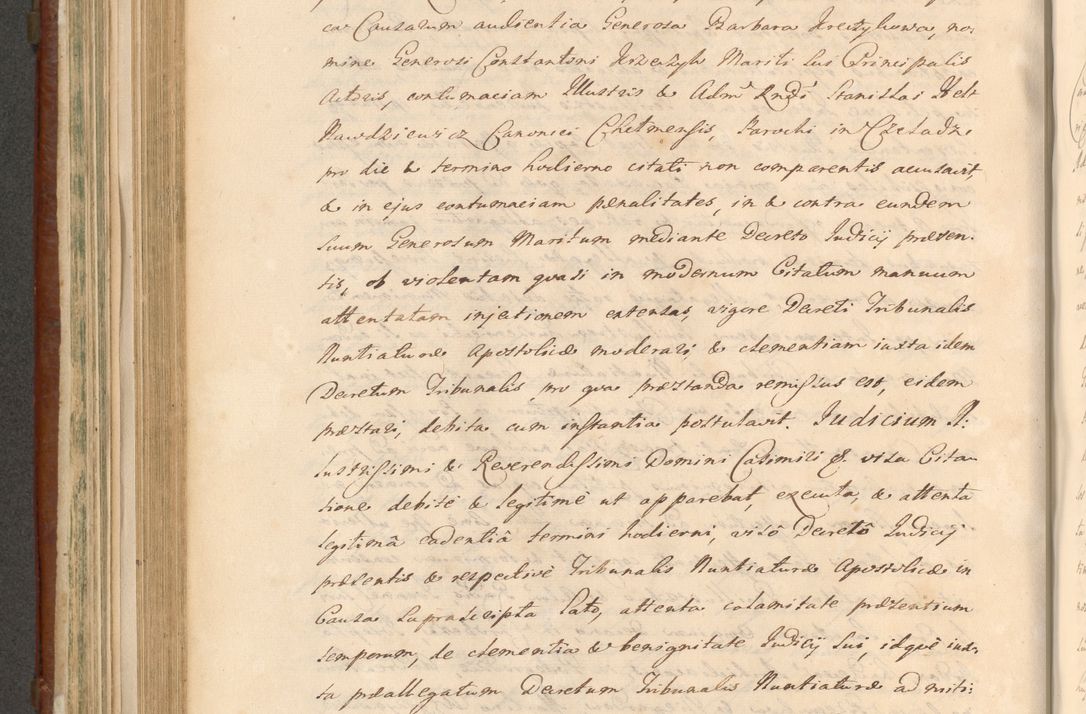 ca Causarum audientia Generosa Barbara Krzyżykowa, no-
mine Generosi Constantini Krzeczyk Mariti sui Principalis
Actoris, contumaciam Illustris & Admd Rndi Stanislai Hekt
Nawdziewicz Canonici Chelmensis, Parochi in Czeladz,
pro die & termino hodierno citati non comparentis acusavit,
& in ejus contumaciam pænalitates, in & contra eundem
suum Generosum Maritum mediante Decreto Judicij præsen-
tis, ob violentam quasi in modernum Citatum manuum
attentatam injectionem extensas, vigore Decreti Tribunalis
Nuntiaturæ Apostolicæ moderari & clementiam iuxta idem
Decretum Tribunalis, pro qua præstanda remissus est, eidem
præstari, debita cum instantia postulavit. Judicium Il:
lustrissimi & Reverendissimi Domini Casimiri &. visa Cita-
tione debitè & legitimè ut apparebat, executa, & attenta
legitimâ cadentiâ termini hodierni, visô Decretô Judicij
præsentis & respectivè Tribunalis Nuntiaturæ Apostolicæ in
Causa suprascripta lato, attenta calamitate præsentium
temporum, de clementia & benignitate Judicij sui, idquè iux-
ta præallegatum Decretum Tribunalis Nuntiaturæ ad miti: